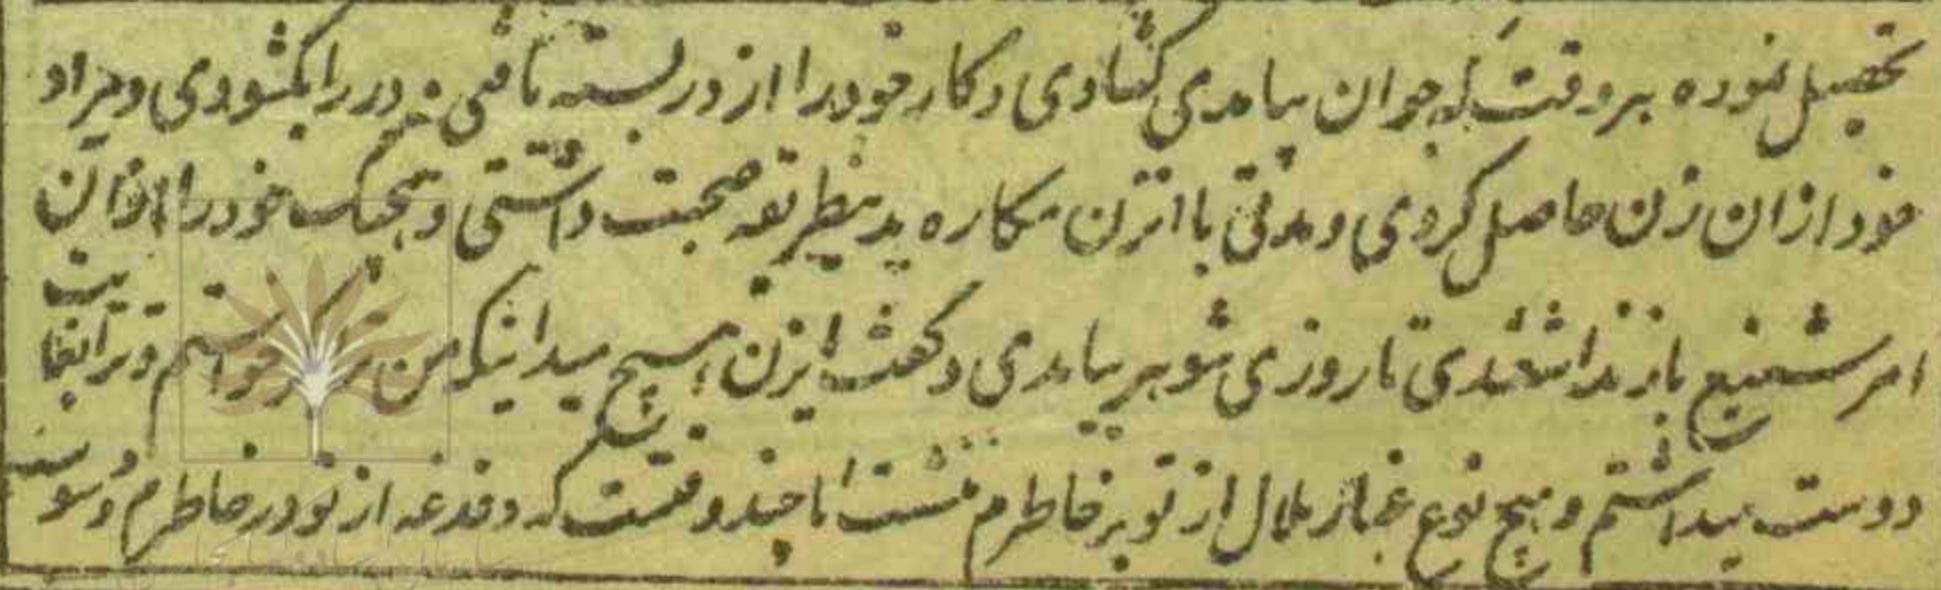 تحصیل نموده بروقت که جوان بیامدی کشادی و کار خود را از در بسته نا در را بکشودی و مراد
خود از ان زن حاصل کردی و مدتی با انزن مکاره بدینطریقه صحبت داشتی و هیچیک خود را از ان
امر شنیع باز نداشتندی تا روزی شوهر بیامدی و کفت ایزن هیچ میدانیکه من ترا و ترا بغایت
دوست میداشتم و هیچ نوع غبار ملال از تو بر خاطرم ننشست اما چند وقتست که دغدغه از تو در خاطرم